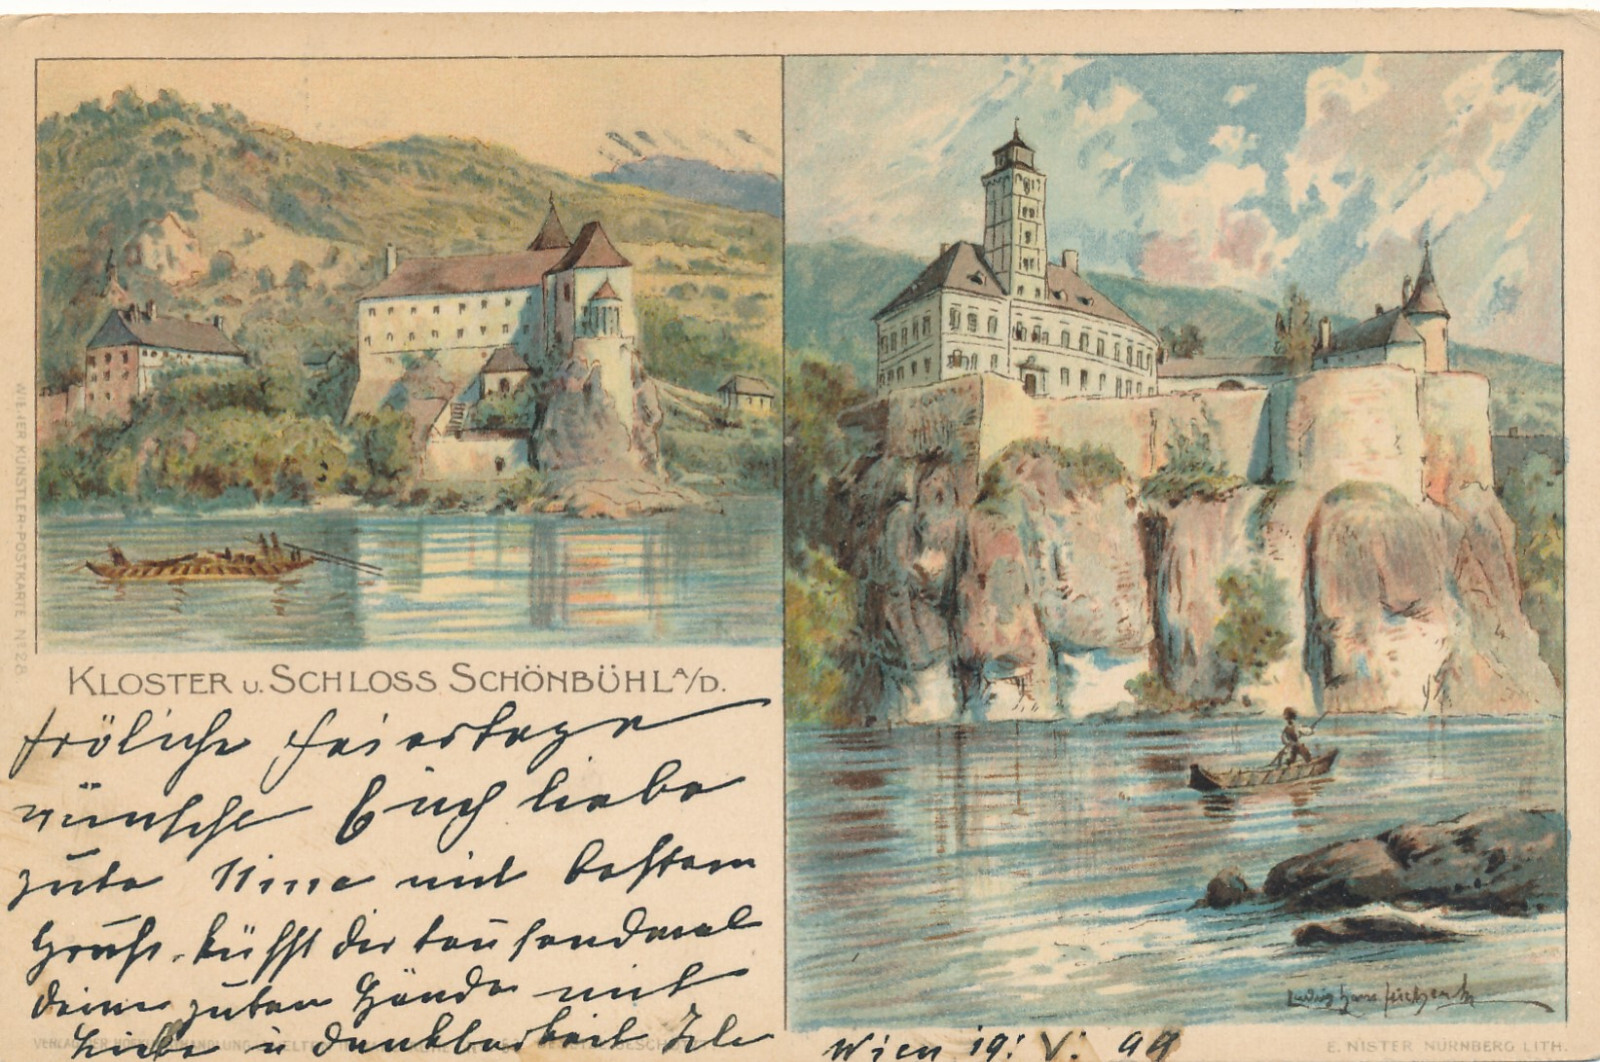 WIENER KÜNSTLER-POSTKARTE Nº 28
KLOSTER U. SCHLOSS SCHÖNBÜHL A/D.
fröliche Feiertage
wünsche Euch liebe
gute Nina mit bestem
Gruß. küßt dir tausendmal
deine guten Hände mit
Liebe u Dankbarkeit
Wien 19: V: 99
Ludwig Hans Fischer
E. NISTER NÜRNBERG LITH.